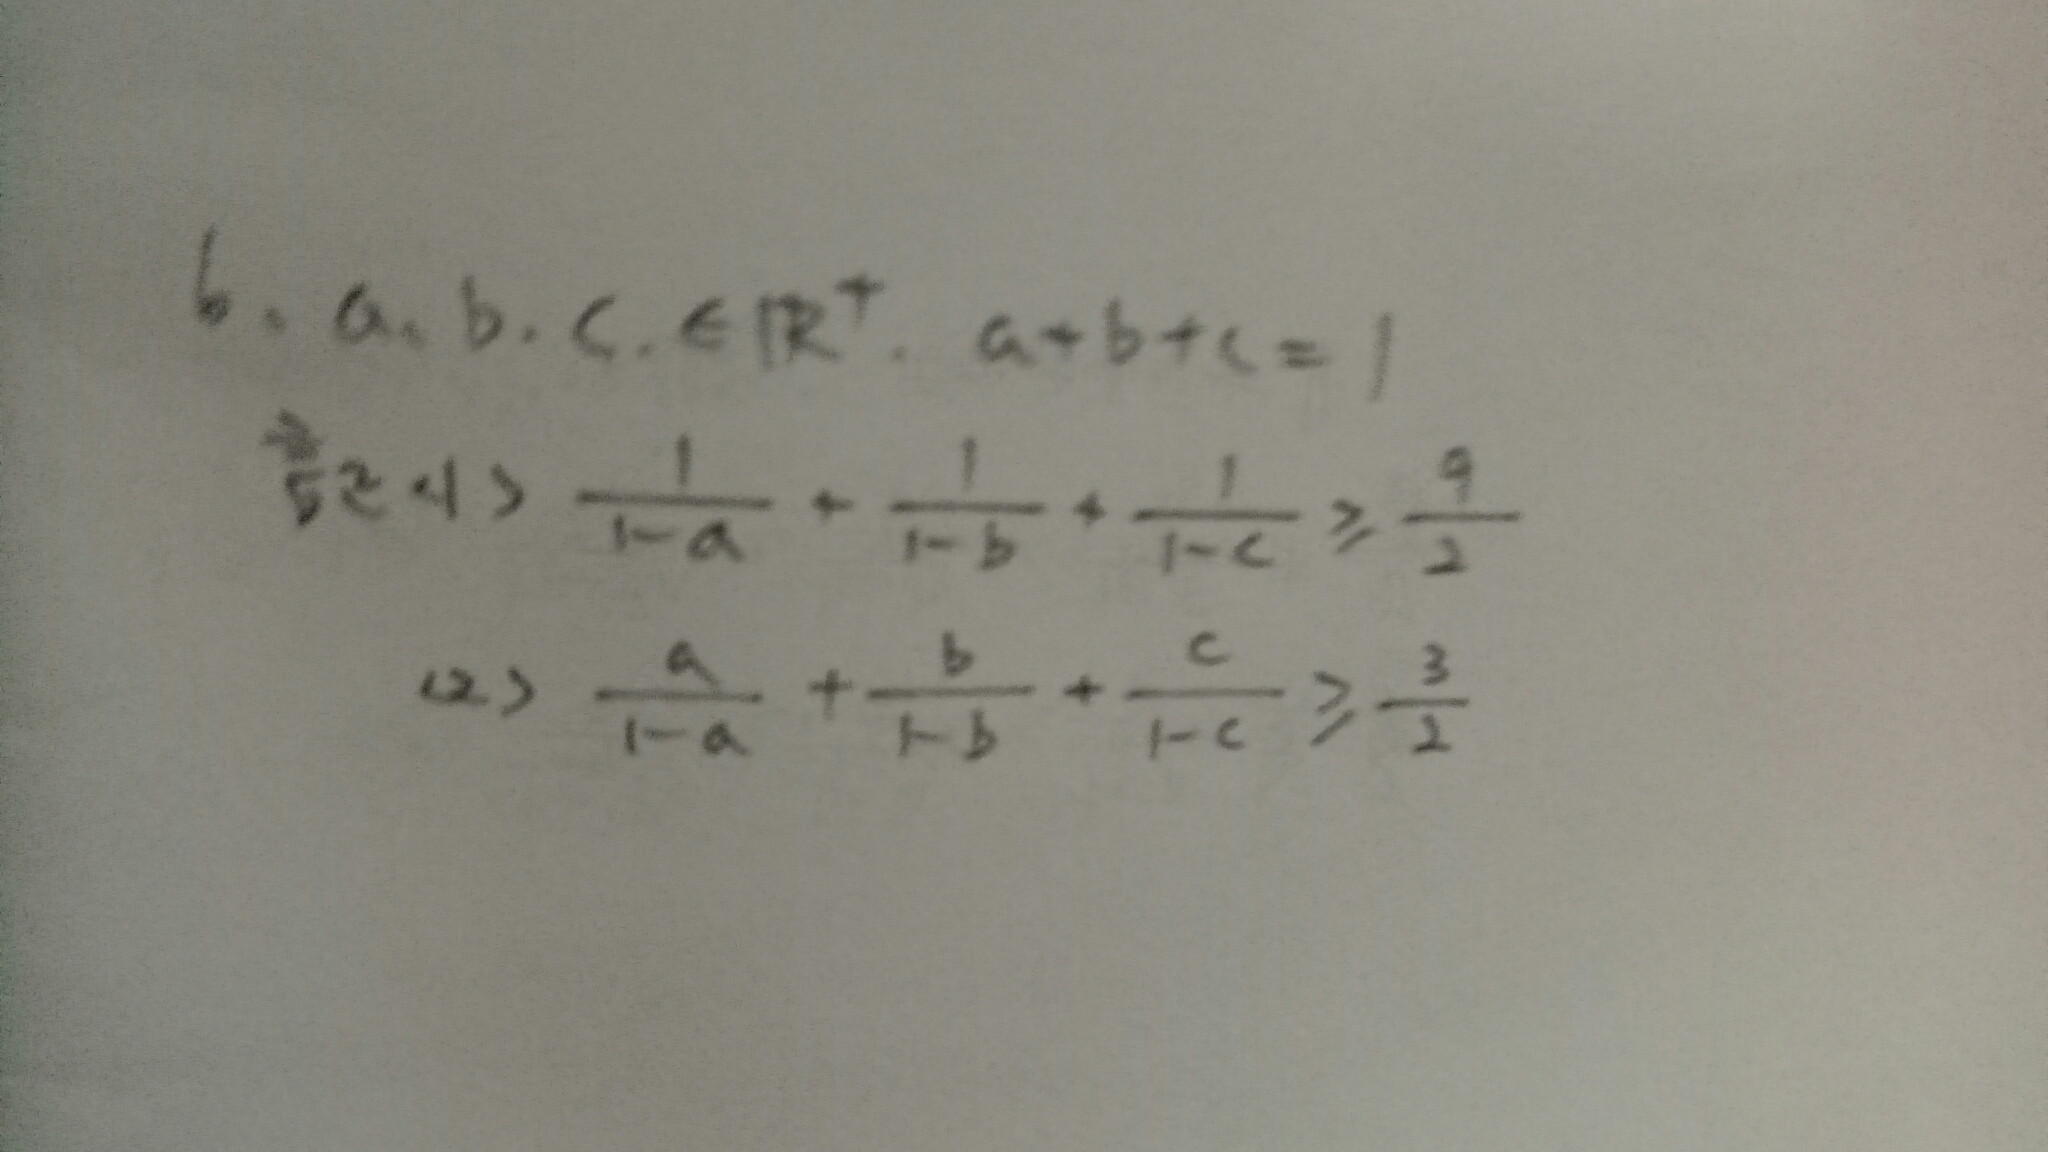 6. a. b. c. ∈ ℝ⁺. a+b+c=1
<1> 1/(1-a) + 1/(1-b) + 1/(1-c) ≥ 9/2
<2> a/(1-a) + b/(1-b) + c/(1-c) ≥ 3/2